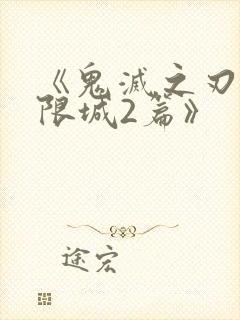 《鬼滅之刃
限城2篇》
途宏